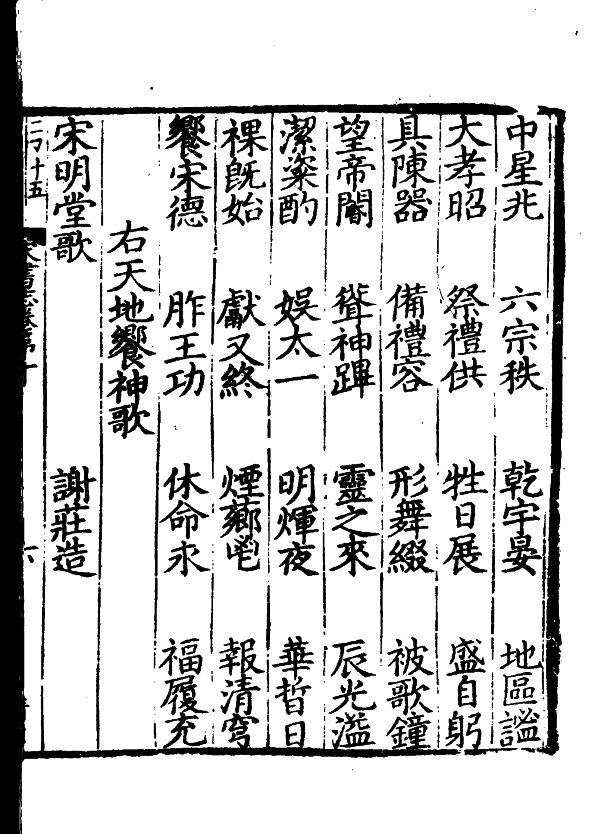 中星兆 六宗秩 乾宇晏 地區謐
大孝昭 祭禮供 牲日展 盛自躬
具陳器 備禮容 形舞綴 被歌鐘
望帝閽 聳神蹕 靈之來 辰光溢
潔粢酌 娛太一 明煇夜 華晳日
祼既始 獻又終 煙薌鬯 報清穹
饗宋德 胙王功 休命永 福履充
右天地饗神歌
宋明堂歌 謝莊造